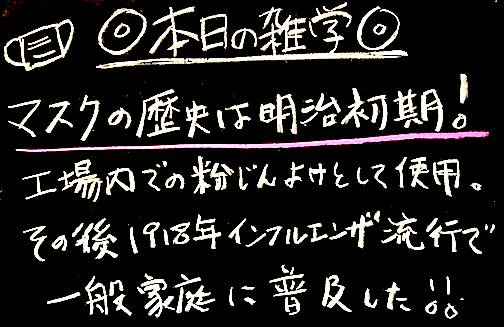 ◎本日の雑学◎
マスクの歴史は明治初期!
工場内での粉じんよけとして使用。
その後1918年インフルエンザ流行で
一般家庭に普及した!!